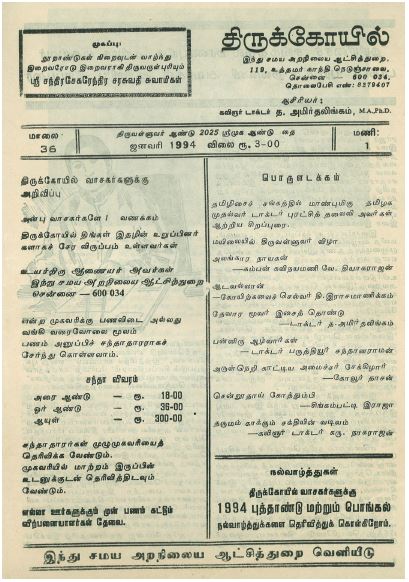 முகப்பு:
நூறாண்டுகள் நிறைவுடன் வாழ்ந்து
இறைவரோடு இறைவராகி திருவருள்புரியும்
ஸ்ரீ சந்திரசேகரேந்திர சரசுவதி சுவாமிகள்
திருக்கோயில்
இந்து சமய அறநிலைய ஆட்சித்துறை,
119, உத்தமர் காந்தி நெடுஞ்சாலை,
சென்னை — 600 034,
தொலைபேசி எண்: 8279407
ஆசிரியர்:
கலிஞர் டாக்டர் த. அமிர்தலிங்கம், M.A.,Ph.D.
மாலை 36
திருவள்ளுவர் ஆண்டு 2025 ஸ்ரீமுக ஆண்டு தை
ஜனவரி 1994 விலை ரூ. 3-00
மணி: 1
திருக்கோயில் வாசகர்களுக்கு
அறிவிப்பு
அன்பு வாசகர்களே ! வணக்கம்
திருக்கோயில் திங்கள் இதழின் உறுப்பினர்
களாகச் சேர விரும்பும் உள்ளவர்கள்
உயர்திரு ஆணையர் அவர்கள்
இந்து சமய அறநிலைய ஆட்சித்துறை
சென்னை — 600 034
என்ற முகவரிக்கு பணவிடை அல்லது
வங்கி வரைவோலை மூலம்
பணம் அனுப்பிச் சந்தாதாரராகச்
சேர்ந்து கொள்ளலாம்.
சந்தா விவரம்
அரை ஆண்டு — ரூ. 18-00
ஓர் ஆண்டு — ரூ. 36-00
ஆயுள் — ரூ. 300-00
சந்தாதாரர்கள் முழுமுகவரியைத்
தெரிவிக்க வேண்டும்.
முகவரியில் மாற்றம் இருப்பின்
உடனுக்குடன் தெரிவித்திடவும்
வேண்டும்.
எல்லா ஊர்களுக்கும் முன் பணம் கட்டும்
விற்பனையாளர்கள் தேவை.
பொருளடக்கம்
தமிழிசைச் சங்கத்தில் மாண்புமிகு தமிழக
முதல்வர் டாக்டர் புரட்சித் தலைவி அவர்கள்
ஆற்றிய சிறப்புரை.
மயிலையில் திருவள்ளுவர் விழா
அலங்கார நாயகன்
—கம்பன் கவிநயமணி வே. தியாகராஜன்
ஆடவல்லான்
—கோயிற்கலைச் செல்வர் தி. இராசமாணிக்கம்
தேவார மூவர் இசைத் தொண்டு
—டாக்டர் த. அமிர்தலிங்கம்
பன்னிரு ஆழ்வார்கள்
—டாக்டர் பருத்தியூர் சந்தானராமன்
அருள்நெறி காட்டிய அமைச்சர் சேக்கிழார்
—கோவூர் தாசன்
சென்றூதாய் கோத்தும்பி
—சிங்கம்பட்டி இராஜா
தருமம் காக்கும் சக்தியின் வடிவம்
—கலிஞர் டாக்டர் கரு. நாகராஜன்
நல்வாழ்த்துகள்
திருக்கோயில் வாசகர்களுக்கு
1994 புத்தாண்டு மற்றும் பொங்கல்
நல்வாழ்த்துக்களை தெரிவித்துக் கொள்கிறோம்.
இந்து சமய அறநிலைய ஆட்சித்துறை வெளியீடு